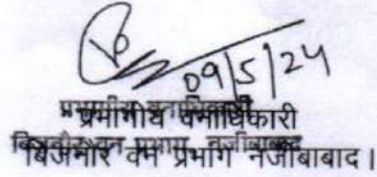 09/5/24
प्रभागीय वनाधिकारी
बिजनौर वन प्रभाग नजीबाबाद।